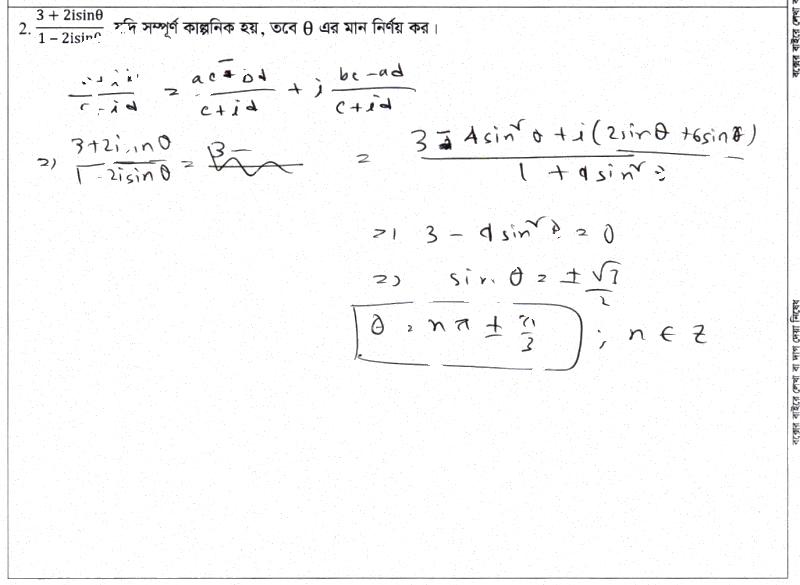 2. (3 + 2isinθ)/(1 − 2isinθ) যদি সম্পূর্ণ কাল্পনিক হয়, তবে θ এর মান নির্ণয় কর।
= (ac - bd)/(c+id) + i (bc-ad)/(c+id)
=> (3+2isinθ)/(1-2isinθ) =
= (3 - 4sin²θ + i(2sinθ + 6sinθ))/(1 + 4sin²θ)
=> 3 - 4sin²θ = 0
=> sinθ = ± √3/2
θ = nπ ± π/3 ; n ∈ Z
বক্সের বাইরে লেখা বা দাগ দেয়া নিষেধ